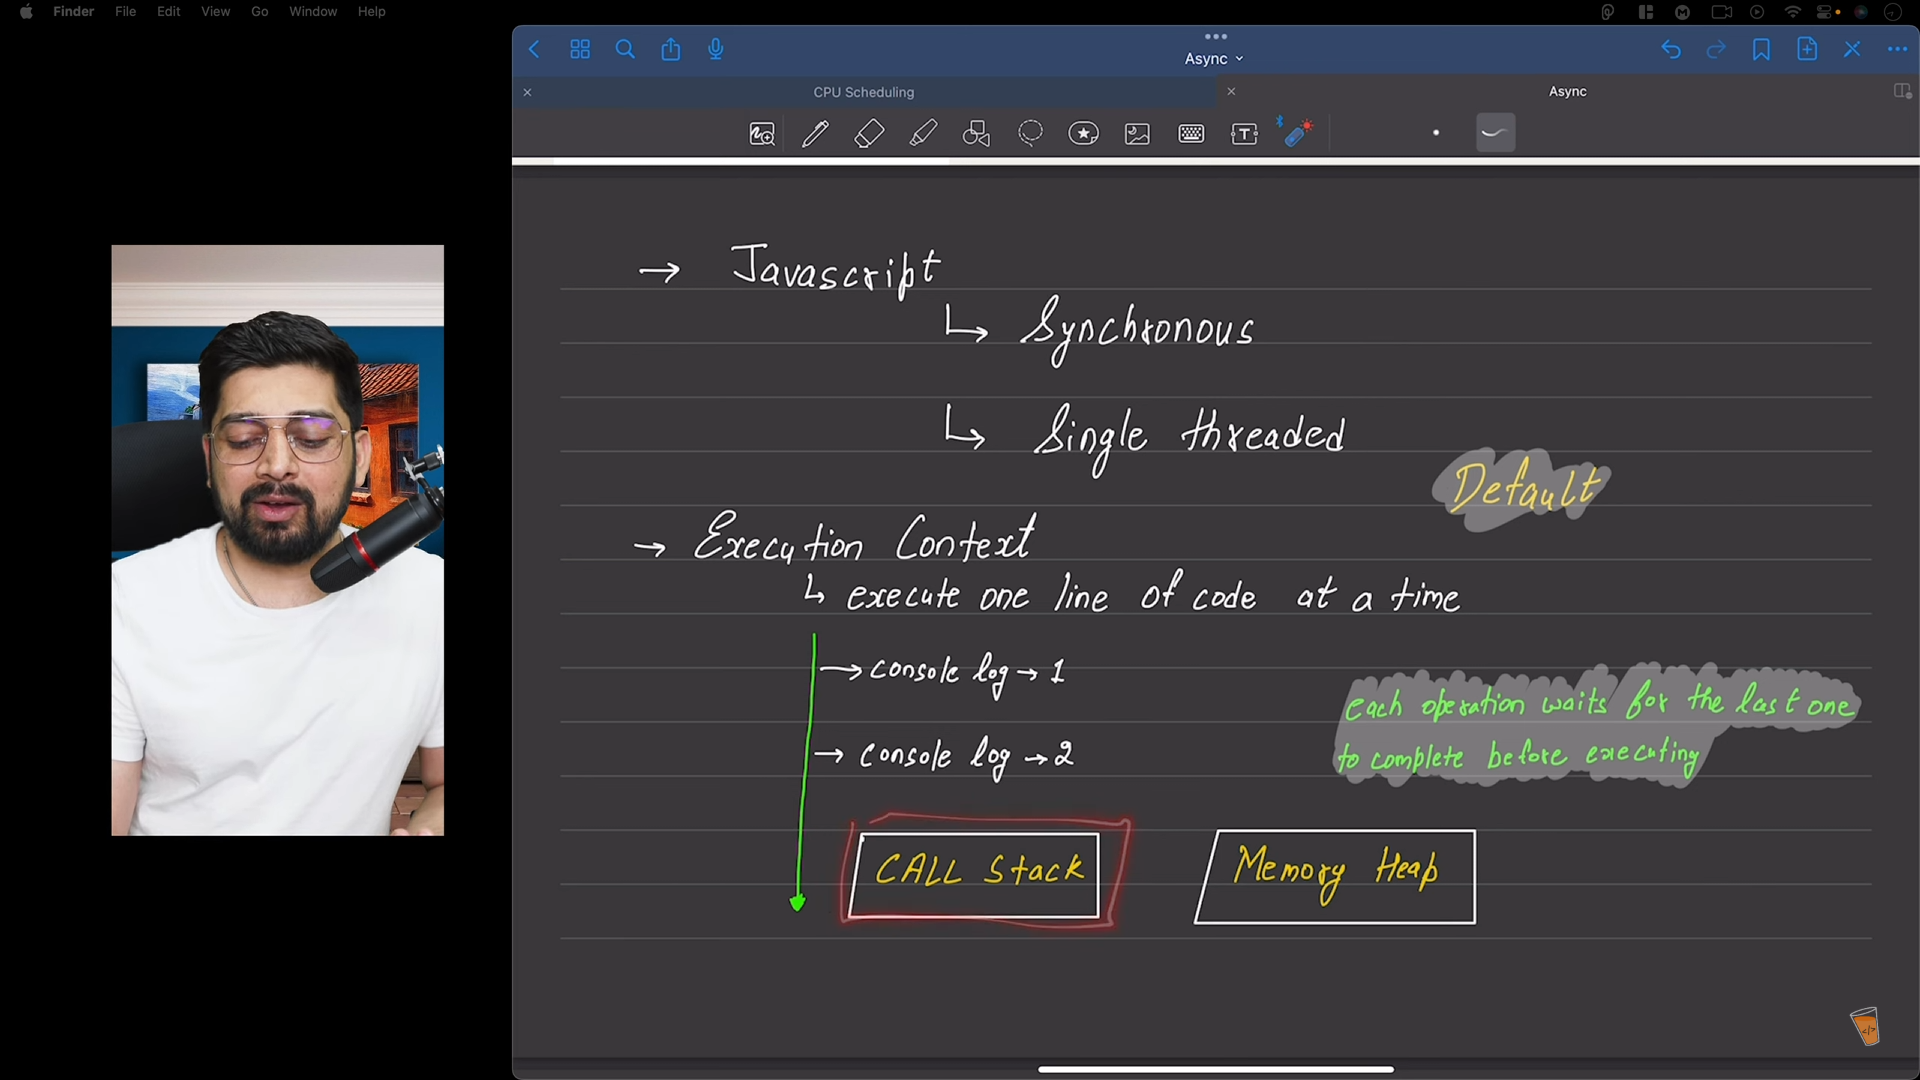 Finder File Edit View Go Window Help
Async
CPU Scheduling
Async
→ Javascript
↳ Synchronous
↳ Single threaded
Default
→ Execution Context
↳ execute one line of code at a time
→ console log → 1
each operation waits for the last one
→ console log → 2
to complete before executing
CALL Stack
Memory Heap